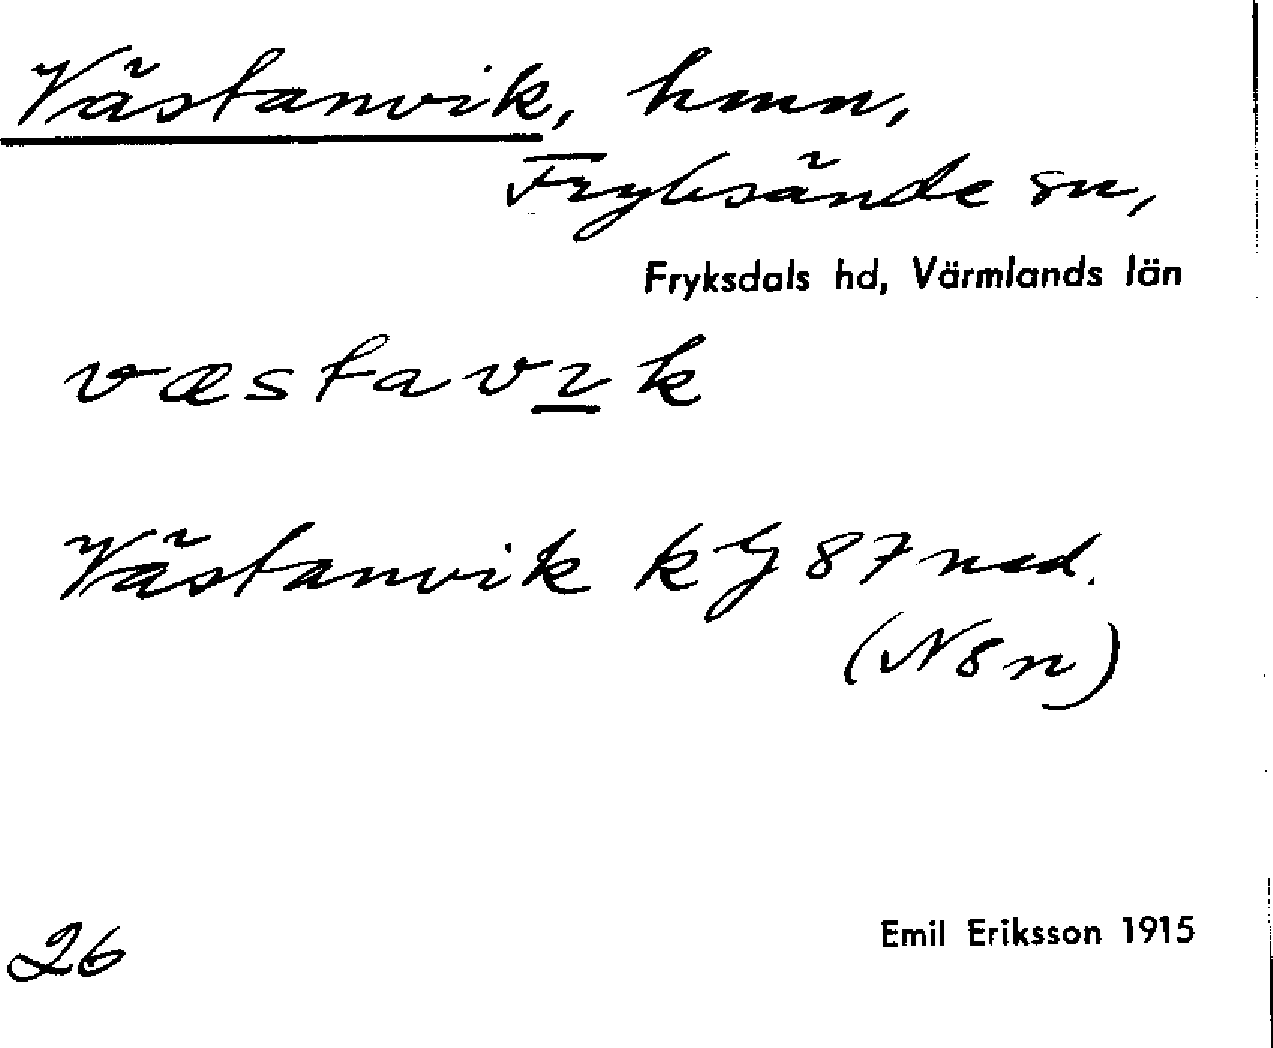 Västanvik, hmn,
Fryksände sn,
Fryksdals hd, Värmlands län
væstavık
Västanvik kG 87 ned.
(N8n)
26
Emil Eriksson 1915